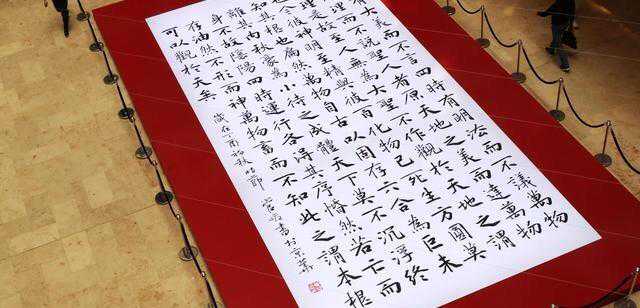 大美而不言四時有明法而不議萬物
而不說聖人者原天地之美而達萬物
理是故至人無為大聖不作觀於天地之謂
今彼神明至精與彼百化物已死生方圓莫
知其根也扁然而萬物自古以固存六合為巨未
離其內秋豪為小待之成體天下莫不沉浮終
身不故陰陽四時運行各得其序惛然若亡而
存油然不形而神萬物畜而不知此之謂本根
可以觀於天矣 歲在丁酉初秋時節